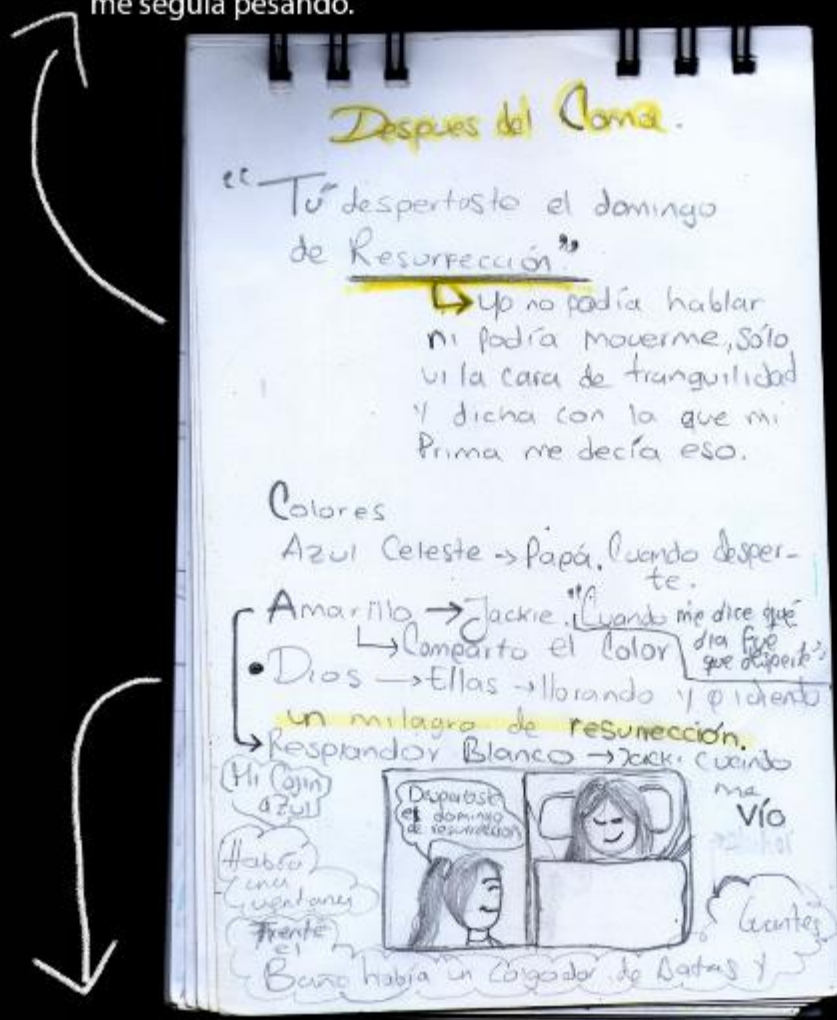 me seguía pesando.
Despues del Coma.
"Tú despertaste el domingo
de Resurrección"
Yo no podía hablar
ni podía moverme, Sólo
vi la cara de tranquilidad
y dicha con la que mi
Prima me decía eso.
Colores
Azul Celeste → Papá. Cuando desper-
te.
Amarillo → Jackie. "Cuando me dice qué
día fue
que desperte"
Comparto el Color
• Dios → Ellas → llorando y pidiendo
un milagro de resurrección.
Resplandor Blanco → Jacki cuando
me
vío
Mi Cojin
azul
Despertaste
el domingo
de resurrección
Había
una
ventana
Frente
el
Guantes
Baño había un Colgador de Batas y